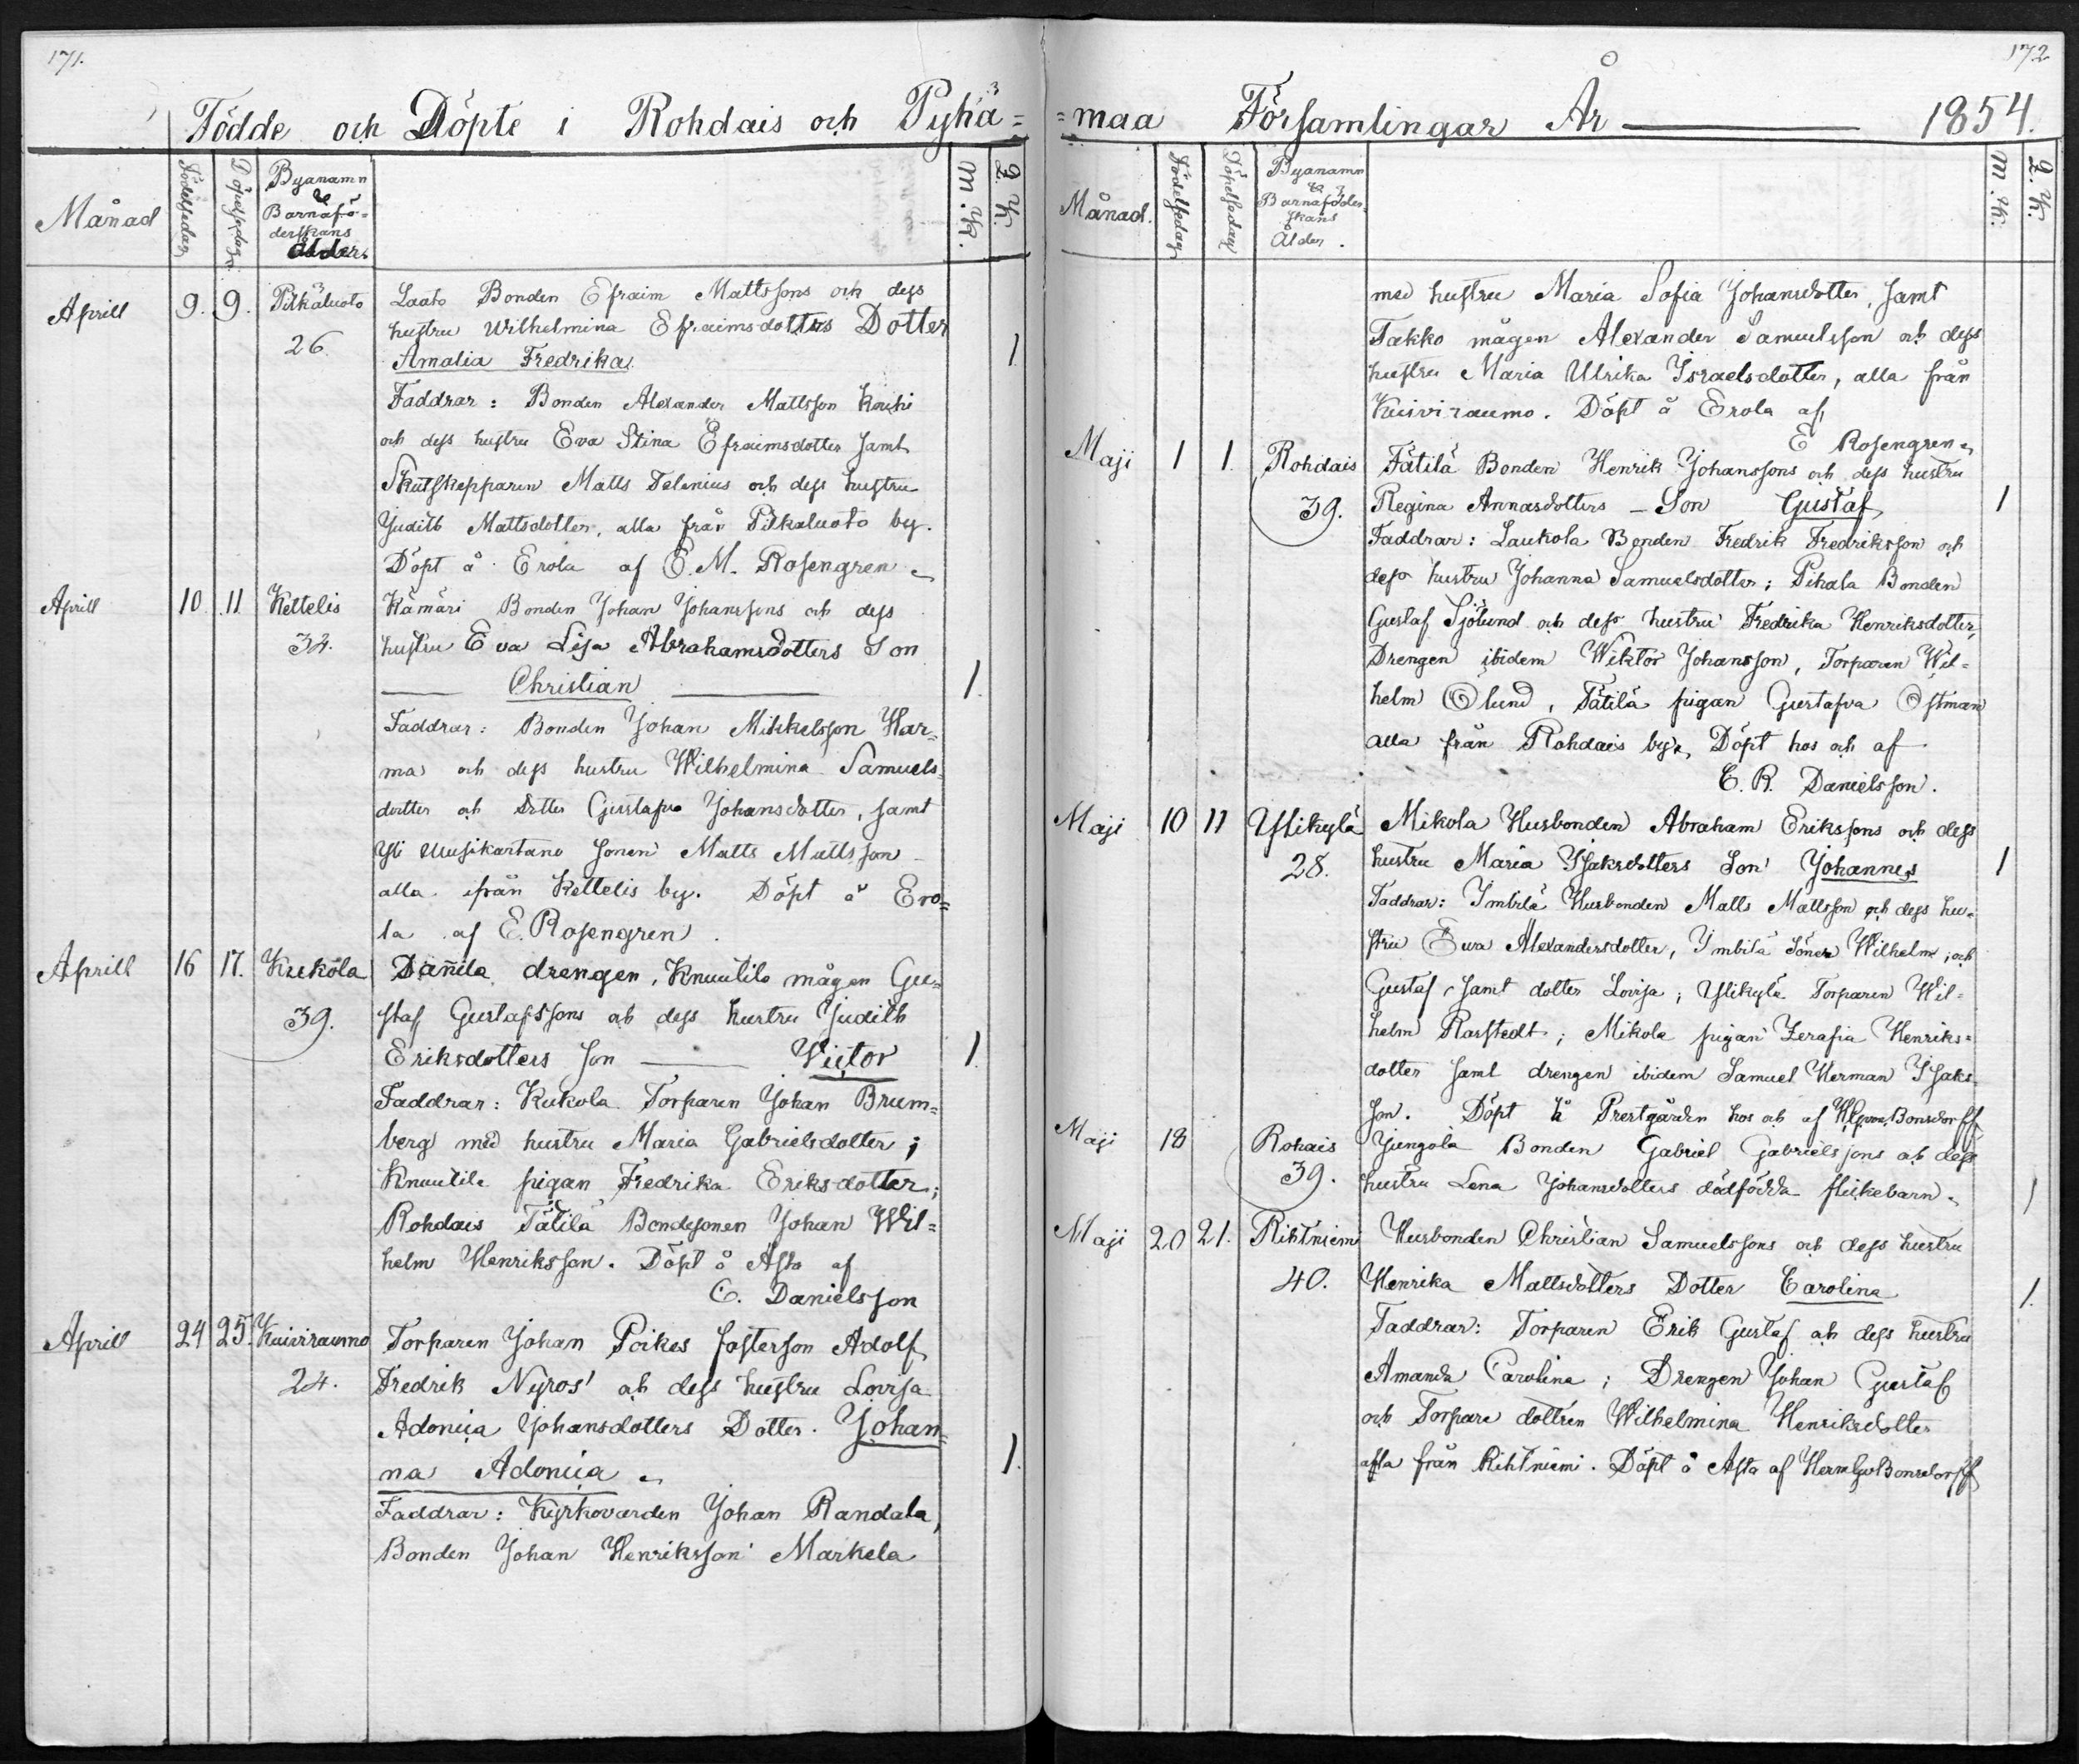 171.
Födde och Döpte i Rohdais och Pyhä=
Månad
Födelsedag
Döpelsedag
Byanamn
&
Barnafö-
derskans
Ålder.
M. K.
Q. K.
Aprill 9. 9. Pitkäluoto
26
Laato Bonden Efraim Mattssons och dess
hustru Wilhelmina Efraimsdotters Dotter
Amalia Fredrika 1
Faddrar: Bonden Alexander Mattsson
och dess hustru Eva Stina Efraimsdotter samt
Skutskepparen Matts Telenius och dess hustru
Judith Mattsdotter, alla från Pitkäluoto by.
Döpt å Erola af E. M. Rosengren
Aprill 10. 11 Kettelis
34.
Kämäri Bonden Johan Johanssons och dess
hustru Eva Lisa Abrahamsdotters Son
Christian 1.
Faddrar: Bonden Johan Mikkelsson Har=
ma och dess hustru Wilhelmina Samuels=
dotter och dotter Gustafva Johansdotter, samt
Yli Uusikartano sonen Matts Mattsson
alla från Kettelis by. Döpt å Ero=
la af E. Rosengren.
Aprill 16 17. Kukola
39.
Dänilä drengen, Knuutila mågen Gu=
staf Gustafssons och dess hustru Judith
Eriksdotters son Victor 1.
Faddrar: Kukola Torparen Johan Brum=
berg med hustru Maria Gabrielsdotter;
Knuutila pigan Fredrika Eriksdotter;
Rohdais Tätilä Bondesonen Johan Wil=
helm Henriksson. Döpt å Asta af
C. Danielsson
Aprill 24 25. Kuiviraumo
24.
Torparen Johan Poikes fosterson Adolf
Fredrik Nyros' och dess hustru Lovisa
Adonia Johansdotters Dotter. Johan=
na Adonia 1.
Faddrar: Kyrkovärden Johan Randala,
Bonden Johan Henriksson Markela
172
=maa Församlingar År 1854.
Månad.
Födelsedag
Döpelsedag
Byanamn
&
Barnaföder-
skans
Ålder.
M. K.
Q. K.
med hustru Maria Sofia Johansdotter, samt
Takko mågen Alexander Samuelsson och dess
hustru Maria Ulrika Israelsdotter, alla från
Kuiviraumo. Döpt å Erola af
E Rosengren
Maji 1 1. Rohdais
39.
Tätilä Bonden Henrik Johanssons och dess hustru
Regina Annasdotters – Son Gustaf 1
Faddrar: Laukola Bonden Fredrik Fredriksson och
dess hustru Johanna Samuelsdotter; Pihala Bonden
Gustaf Sjölund och dess hustru Fredrika Henriksdotter,
Drengen ibidem Wiktor Johansson, Torparen Wil=
helm Ölund, Tätilä pigan Gustafva Östman
alla från Rohdais by. Döpt hos och af
C. R. Danielsson.
Maji 10 11 Ylikylä
28.
Mikola Husbonden Abraham Erikssons och dess
hustru Maria Isaksdotters Son Johannes 1
Faddrar: Imbilä Husbonden Matts Mattsson och dess hu=
stru Eva Alexandersdotter, Imbilä Söner Wilhelm och
Gustaf, samt dotter Lovisa; Ylikylä Torparen Wil=
helm Rarstedt; Mikola pigan Serafia Henriks=
dotter samt drengen ibidem Samuel Herman Isaks=
son. Döpt å Prestgården hos och af Bonsdorff
Maji 18 Rohais
39.
Jungola Bonden Gabriel Gabrielssons och dess
hustru Lena Johansdotters dödfödda flickebarn. 1
Maji 20 21. Rihtniemi
40.
Husbonden Christian Samuelssons och dess hustru
Henrika Mattsdotters Dotter Carolina 1.
Faddrar: Torparen Erik Gustaf och dess hustru
Amanda Carolina; Drengen Johan Gustaf
och Torpare dottren Wilhelmina Henriksdotter
alla från Rihtniemi. Döpt å Asta af Bonsdorff